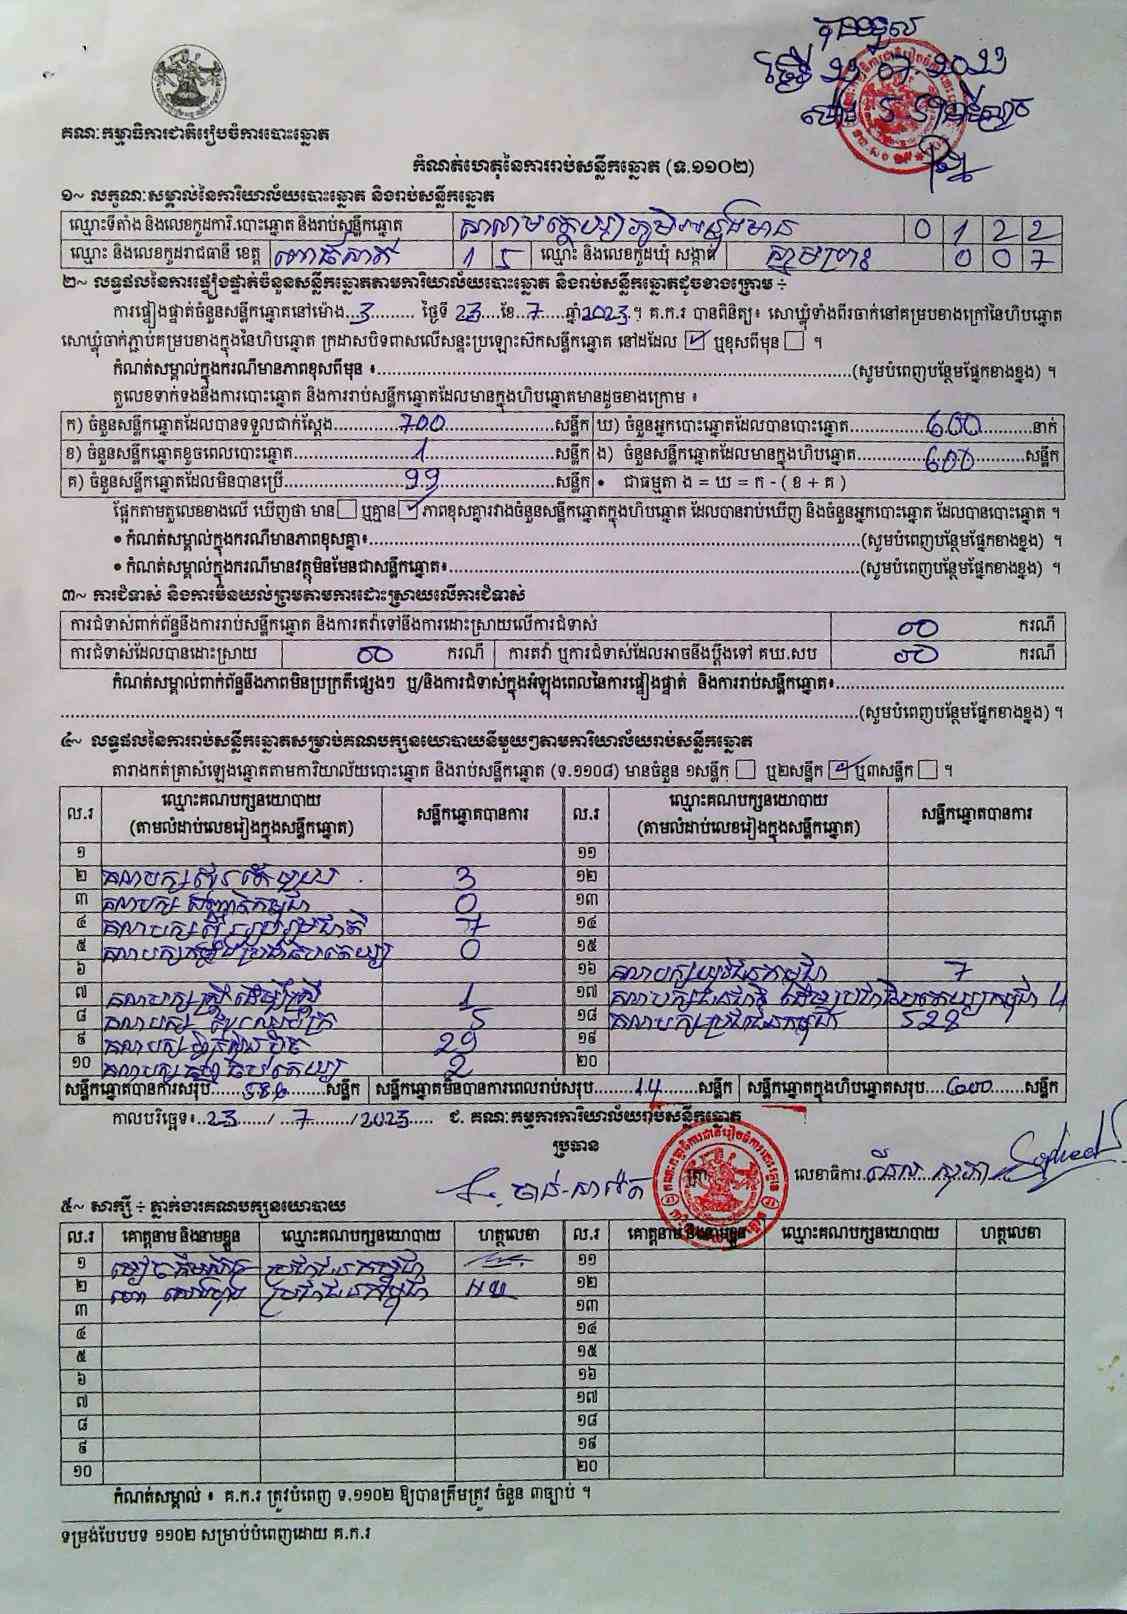 បានទទួល
ថ្ងៃទី ២៣.០៧.២០២៣
គណៈកម្មាធិការជាតិរៀបចំការបោះឆ្នោត
កំណត់ហេតុនៃការរាប់សន្លឹកឆ្នោត (ទ.១១០២)
១~ លក្ខណៈសម្គាល់នៃការិយាល័យបោះឆ្នោត និងរាប់សន្លឹកឆ្នោត
ឈ្មោះទីតាំង និងលេខកូដការិ.បោះឆ្នោត និងរាប់សន្លឹកឆ្នោត 0 1 2 2
ឈ្មោះ និងលេខកូដរាជធានី ខេត្ត ពោធិ៍សាត់ 1 5 ឈ្មោះ និងលេខកូដឃុំ សង្កាត់ 0 0 7
២~ លទ្ធផលនៃការផ្ទៀងផ្ទាត់ចំនួនសន្លឹកឆ្នោតតាមការិយាល័យបោះឆ្នោត និងរាប់សន្លឹកឆ្នោតដូចខាងក្រោម ÷
ការផ្ទៀងផ្ទាត់ចំនួនសន្លឹកឆ្នោតនៅម៉ោង...3......... ថ្ងៃទី 23....ខែ..7.....ឆ្នាំ2023.។ គ.ក.រ បានពិនិត្យ៖ សោឃ្លុំទាំងពីរចាក់នៅគម្របខាងក្រៅនៃហិបឆ្នោត
សោឃ្លុំចាក់ភ្ជាប់គម្របខាងក្នុងនៃហិបឆ្នោត ក្រដាសបិទពាសលើសន្ទះប្រឡោះស៊កសន្លឹកឆ្នោត នៅដដែល ☑ ឬខុសពីមុន ☐ ។
កំណត់សម្គាល់ក្នុងករណីមានភាពខុសពីមុន ៖........(សូមបំពេញបន្ថែមផ្នែកខាងខ្នង) ។
តួលេខទាក់ទងនឹងការបោះឆ្នោត និងការរាប់សន្លឹកឆ្នោតដែលមានក្នុងហិបឆ្នោតមានដូចខាងក្រោម ៖
ក) ចំនួនសន្លឹកឆ្នោតដែលបានទទួលជាក់ស្តែង........700........សន្លឹក ឃ) ចំនួនអ្នកបោះឆ្នោតដែលបានបោះឆ្នោត........600........នាក់
ខ) ចំនួនសន្លឹកឆ្នោតខូចពេលបោះឆ្នោត........1........សន្លឹក ង) ចំនួនសន្លឹកឆ្នោតដែលមានក្នុងហិបឆ្នោត........600........សន្លឹក
គ) ចំនួនសន្លឹកឆ្នោតដែលមិនបានប្រើ........99........សន្លឹក • ជាធម្មតា ង = ឃ = ក - ( ខ + គ )
ផ្អែកតាមតួលេខខាងលើ ឃើញថា មាន ☐ ឬគ្មាន ☑ ភាពខុសគ្នារវាងចំនួនសន្លឹកឆ្នោតក្នុងហិបឆ្នោត ដែលបានរាប់ឃើញ និងចំនួនអ្នកបោះឆ្នោត ដែលបានបោះឆ្នោត ។
• កំណត់សម្គាល់ក្នុងករណីមានភាពខុសគ្នា៖........(សូមបំពេញបន្ថែមផ្នែកខាងខ្នង) ។
• កំណត់សម្គាល់ក្នុងករណីមានវត្ថុមិនមែនជាសន្លឹកឆ្នោត៖........(សូមបំពេញបន្ថែមផ្នែកខាងខ្នង) ។
៣~ ការជំទាស់ និងការមិនយល់ព្រមតាមការដោះស្រាយលើការជំទាស់
ការជំទាស់ពាក់ព័ន្ធនឹងការរាប់សន្លឹកឆ្នោត និងការតវ៉ាទៅនឹងការដោះស្រាយលើការជំទាស់ 00 ករណី
ការជំទាស់ដែលបានដោះស្រាយ 00 ករណី ការតវ៉ា ឬការជំទាស់ដែលអាចនឹងប្តឹងទៅ គឃ.សប 00 ករណី
កំណត់សម្គាល់ពាក់ព័ន្ធនឹងភាពមិនប្រក្រតីផ្សេងៗ ឬ/និងការជំទាស់ក្នុងអំឡុងពេលនៃការផ្ទៀងផ្ទាត់ និងការរាប់សន្លឹកឆ្នោត៖........
........(សូមបំពេញបន្ថែមផ្នែកខាងខ្នង) ។
៤~ លទ្ធផលនៃការរាប់សន្លឹកឆ្នោតសម្រាប់គណបក្សនយោបាយនីមួយៗតាមការិយាល័យរាប់សន្លឹកឆ្នោត
តារាងកត់ត្រាសំឡេងឆ្នោតតាមការិយាល័យបោះឆ្នោត និងរាប់សន្លឹកឆ្នោត (ទ.១១០៨) មានចំនួន ១សន្លឹក ☐ ឬ២សន្លឹក ☑ ឬ៣សន្លឹក ☐ ។
ល.រ ឈ្មោះគណបក្សនយោបាយ (តាមលំដាប់លេខរៀងក្នុងសន្លឹកឆ្នោត) សន្លឹកឆ្នោតបានការ ល.រ ឈ្មោះគណបក្សនយោបាយ (តាមលំដាប់លេខរៀងក្នុងសន្លឹកឆ្នោត) សន្លឹកឆ្នោតបានការ
១ ១១
២ គណបក្ស 3 ១២
៣ គណបក្ស កម្ពុជា 0 ១៣
៤ គណបក្ស 7 ១៤
៥ គណបក្ស ប្រជាធិបតេយ្យ 0 ១៥
៦ ១៦ គណបក្សយុវជនកម្ពុជា 7
៧ គណបក្សស្ត្រីដើម្បីស្ត្រី 1 ១៧ គណបក្ស 4
៨ គណបក្ស 5 ១៨ គណបក្សប្រជាជនកម្ពុជា 528
៩ គណបក្ស ហ្វ៊ុនស៊ិនប៉ិច 29 ១៩
១០ គណបក្ស 2 ២០
សន្លឹកឆ្នោតបានការសរុប......586......សន្លឹក សន្លឹកឆ្នោតមិនបានការពេលរាប់សរុប........14......សន្លឹក សន្លឹកឆ្នោតក្នុងហិបឆ្នោតសរុប....600......សន្លឹក
កាលបរិច្ឆេទ៖..23......../ ...7........./2023..... ជ. គណៈកម្មការការិយាល័យរាប់សន្លឹកឆ្នោត
ប្រធាន
ត្រា លេខាធិការ
៥~ សាក្សី ÷ ភ្នាក់ងារគណបក្សនយោបាយ
ល.រ គោត្តនាម និងនាមខ្លួន ឈ្មោះគណបក្សនយោបាយ ហត្ថលេខា ល.រ គោត្តនាម និងនាមខ្លួន ឈ្មោះគណបក្សនយោបាយ ហត្ថលេខា
១ ប្រជាជនកម្ពុជា ១១
២ ប្រជាជនកម្ពុជា ១២
៣ ១៣
៤ ១៤
៥ ១៥
៦ ១៦
៧ ១៧
៨ ១៨
៩ ១៩
១០ ២០
កំណត់សម្គាល់ ៖ គ.ក.រ ត្រូវបំពេញ ទ.១១០២ ឱ្យបានត្រឹមត្រូវ ចំនួន ៣ច្បាប់ ។
ទម្រង់បែបបទ ១១០២ សម្រាប់បំពេញដោយ គ.ក.រ